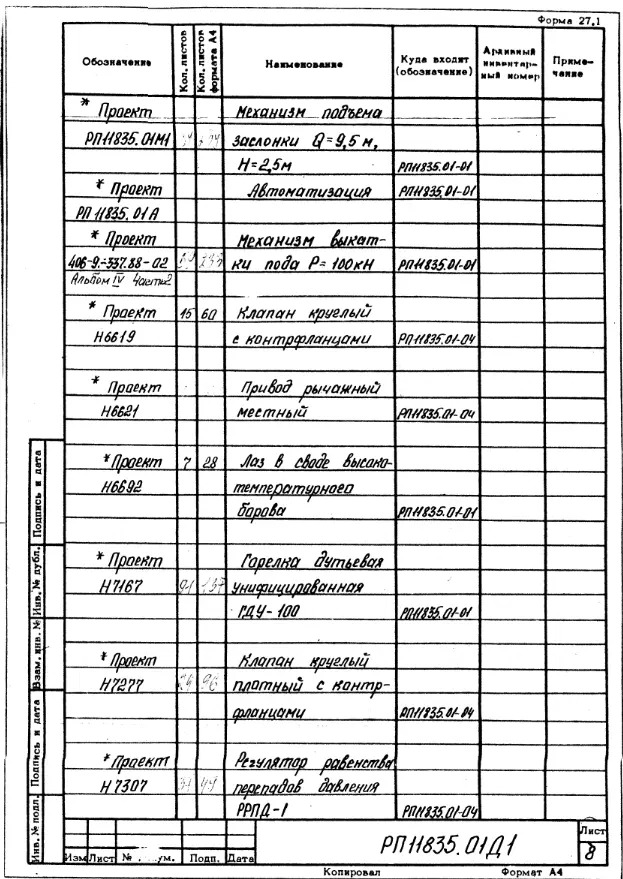 Форма 27,1
Обозначение Кол. листов Кол. листов формата А4 Наименование Куда входит (обозначение) Архивный инвентарный номер Примечание
* Проект Механизм подъема
РП11835.01М1 заслонки Q=9,5м,
Н=2,5м РП11835.01-01
* Проект Автоматизация РП11835.01-01
РП11835.01А
* Проект Механизм выкат-
406-9-337.88-02 ки пода Р=100кН РП11835.01-01
Альбом IV Часть 2
* Проект 15 60 Клапан круглый
Н6619 с контрфланцами РП11835.01-04
* Проект Привод рычажный
Н6621 местный РП11835.01-04
* Проект 7 28 Лаз в своде высоко-
Н6692 температурного
борова РП11835.01-01
* Проект Горелка дутьевая
Н7167 унифицированная
ГДУ-100 РП11835.01-01
* Проект Клапан круглый
Н7277 96 плотный с контр-
фланцами РП11835.01-04
* Проект Регулятор равенства
Н7307 перепадов давления
РРПД-1 РП11835.01-04
Подпись и дата
Инв. № дубл.
Взам. инв. №
Подпись и дата
Инв. № подл.
РП11835.01Д1 Лист
8
Изм Лист № Подп. Дата
Копировал Формат А4